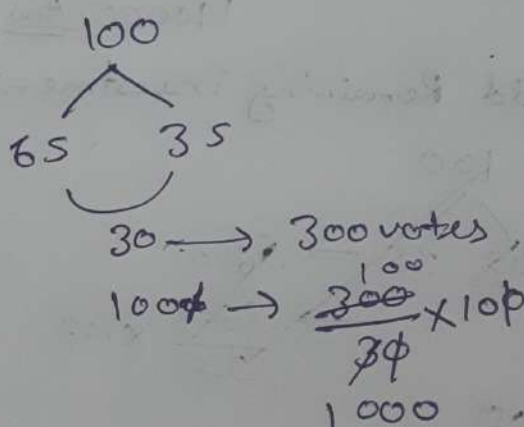 100
65 35
30 → 300 votes
100
100 → 300/30 × 100
1000